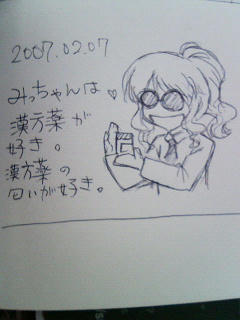 2007.02.07
みっちゃんは♡
漢方薬が
好き。
漢方薬の
匂いが好き。